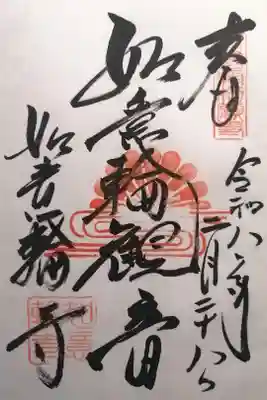 奉拝
令和八年二月二十八日
如意輪觀音
如意輪寺